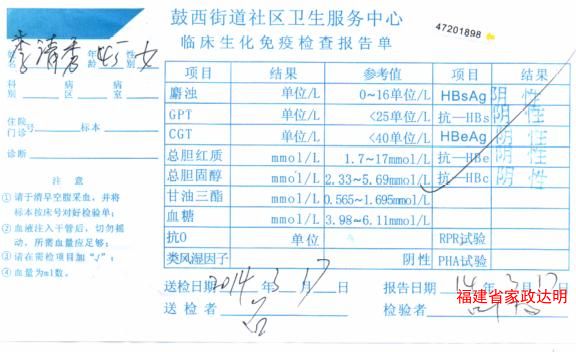 鼓西街道社区卫生服务中心
47201898
临床生化免疫检查报告单
姓名 李清秀 年龄 女
科别 病区 病室
住院 门诊 号 标本
诊断
注 意
① 请于清早空腹采血，并将标本按床号对好检验单；
② 血液注入干管后，切勿摇动，所需血量应足够；
③ 请在需检项目加“√”；
④ 血量为ml数。
项目 结果 参考值 项目 结果
麝浊 单位/L 0~16单位/L HBsAg 阴性
GPT 单位/L <25单位/L 抗—HBs 阴性
CGT 单位/L <40单位/L HBeAg 阴性
总胆红质 mmol/L 1.7~17mmol/L 抗—HBe 阴性
总胆固醇 mmol/L 2.33~5.69mmol/L 抗—HBc 阴性
甘油三酯 mmol/L 0.565~1.695mmol/L
血糖 mmol/L 3.98~6.11mmol/L
抗O 单位 RPR试验
类风湿因子 阴性 PHA试验
送检日期 2014年3月17日 报告日期 14年3月17日
送检者 检验者
福建省家政达明